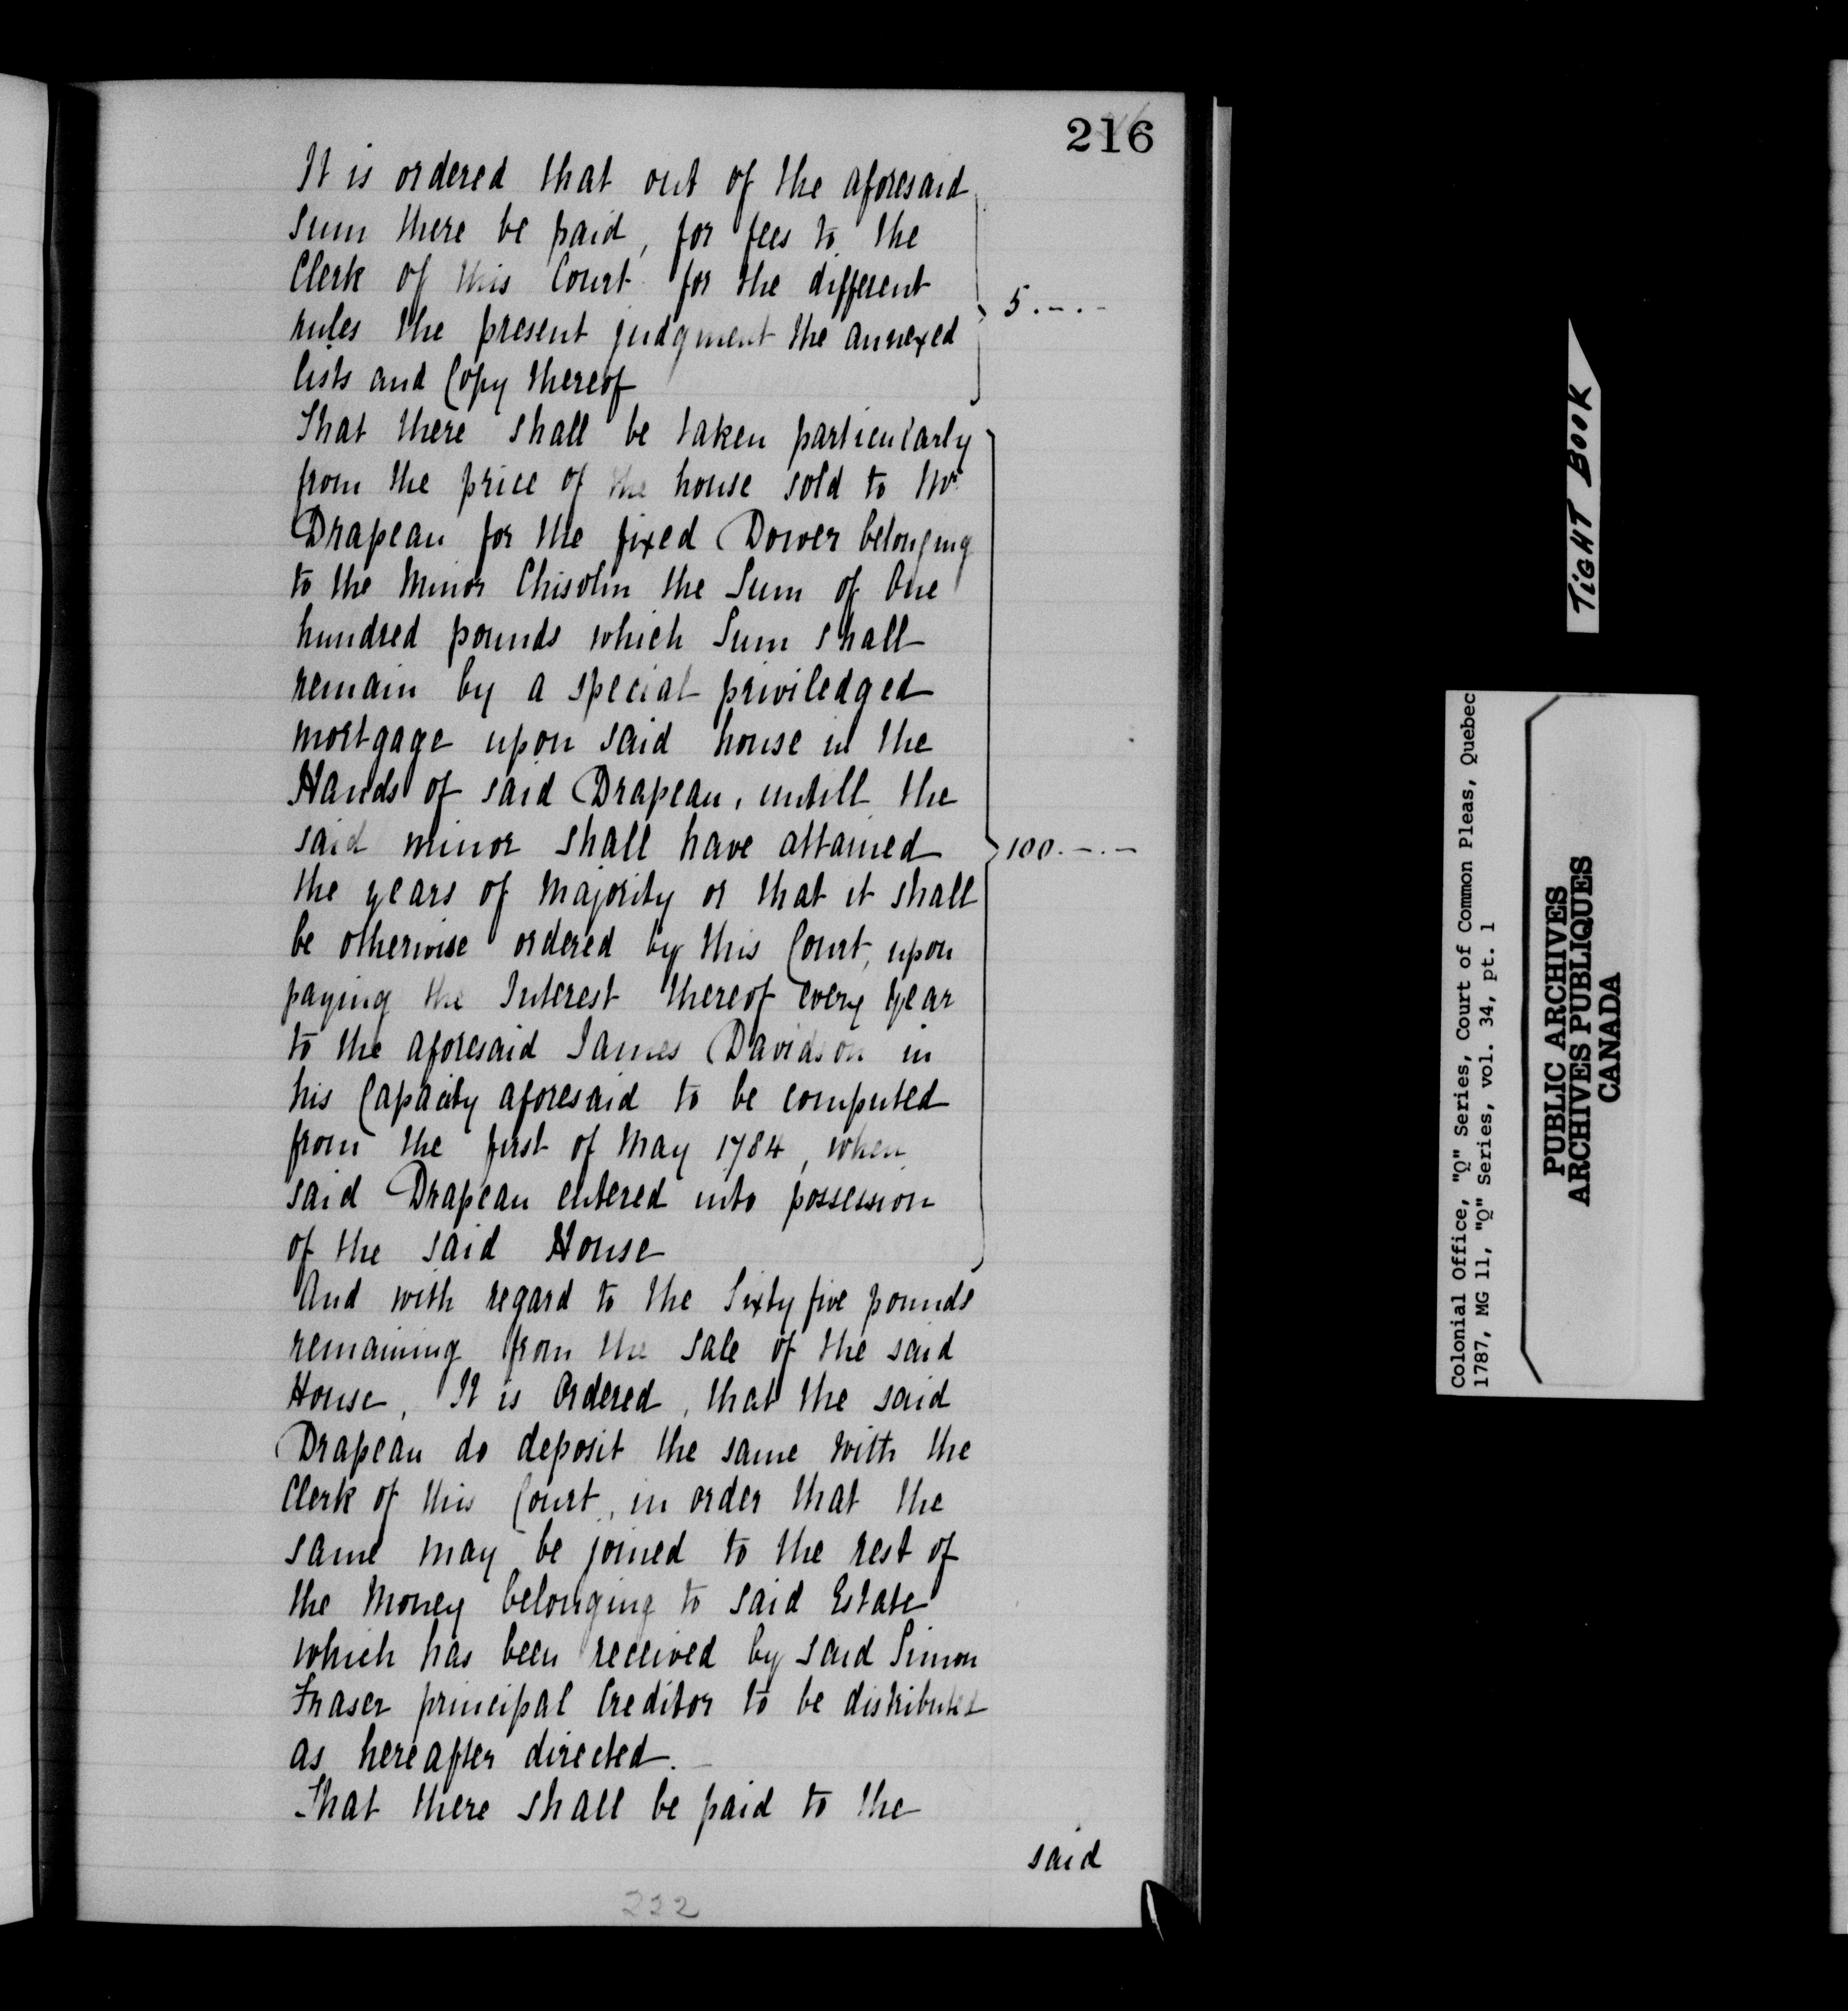 216
It is ordered that out of the aforesaid
sum there be paid, for fees to the
Clerk of this Court for the different
rules the present judgment the annexed
lists and Copy thereof
5.-.-
That there shall be taken particularly
from the price of the house sold to Mr
Drapeau for the fixed Dower belonging
to the Minor Chisolm the Sum of One
hundred pounds which Sum shall
remain by a special priviledged
mortgage upon said house in the
Hands of said Drapeau, untill the
said minor shall have attained
100.-.-
the years of Majority or that it shall
be otherwise ordered by this Court, upon
paying the Interest thereof every year
to the aforesaid James Davidson in
his Capacity aforesaid to be computed
from the first of May 1784, when
said Drapeau entered into possession
of the said House
And with regard to the Sixty five pounds
remaining from the sale of the said
House, It is Ordered, that the said
Drapeau do deposit the same with the
Clerk of this Court, in order that the
same may be joined to the rest of
the Money belonging to said Estate
which has been received by said Simon
Fraser principal Creditor to be distributed
as hereafter directed.
That there shall be paid to the
said
222
TIGHT BOOK
Colonial Office, "Q" Series, Court of Common Pleas, Quebec
1787, MG 11, "Q" Series, vol. 34, pt. 1
PUBLIC ARCHIVES
ARCHIVES PUBLIQUES
CANADA